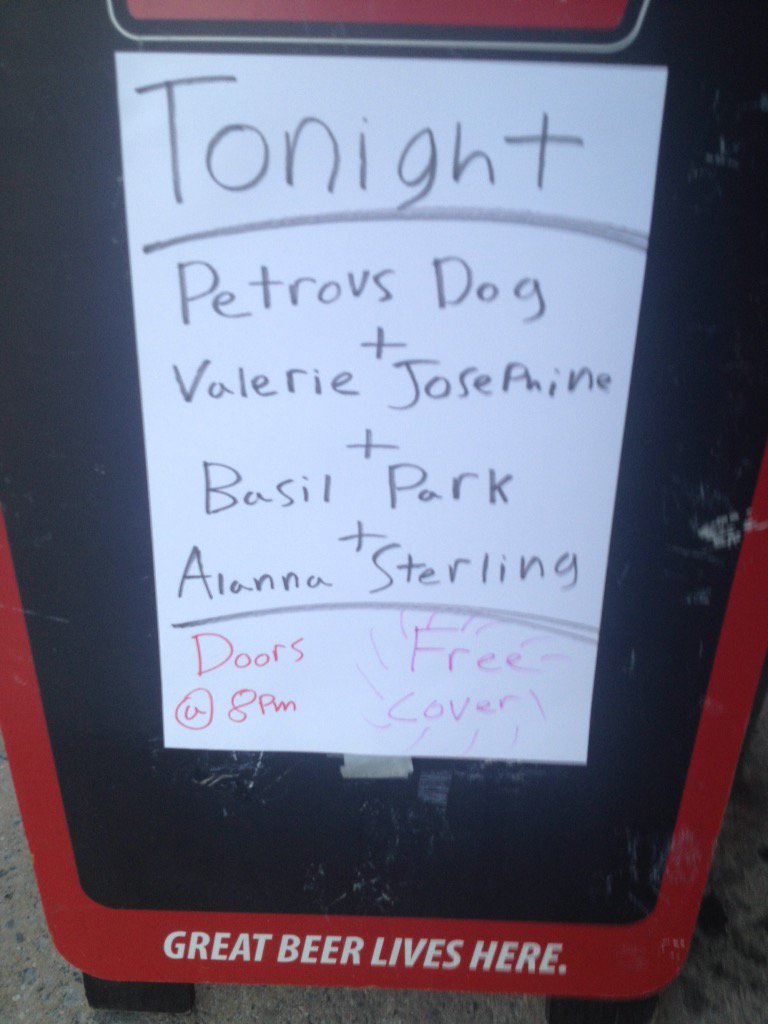 Tonight
Petrovs Dog
+
Valerie Josephine
+
Basil Park
+
Alanna Sterling
Doors
@ 8pm
Free
Cover
GREAT BEER LIVES HERE.